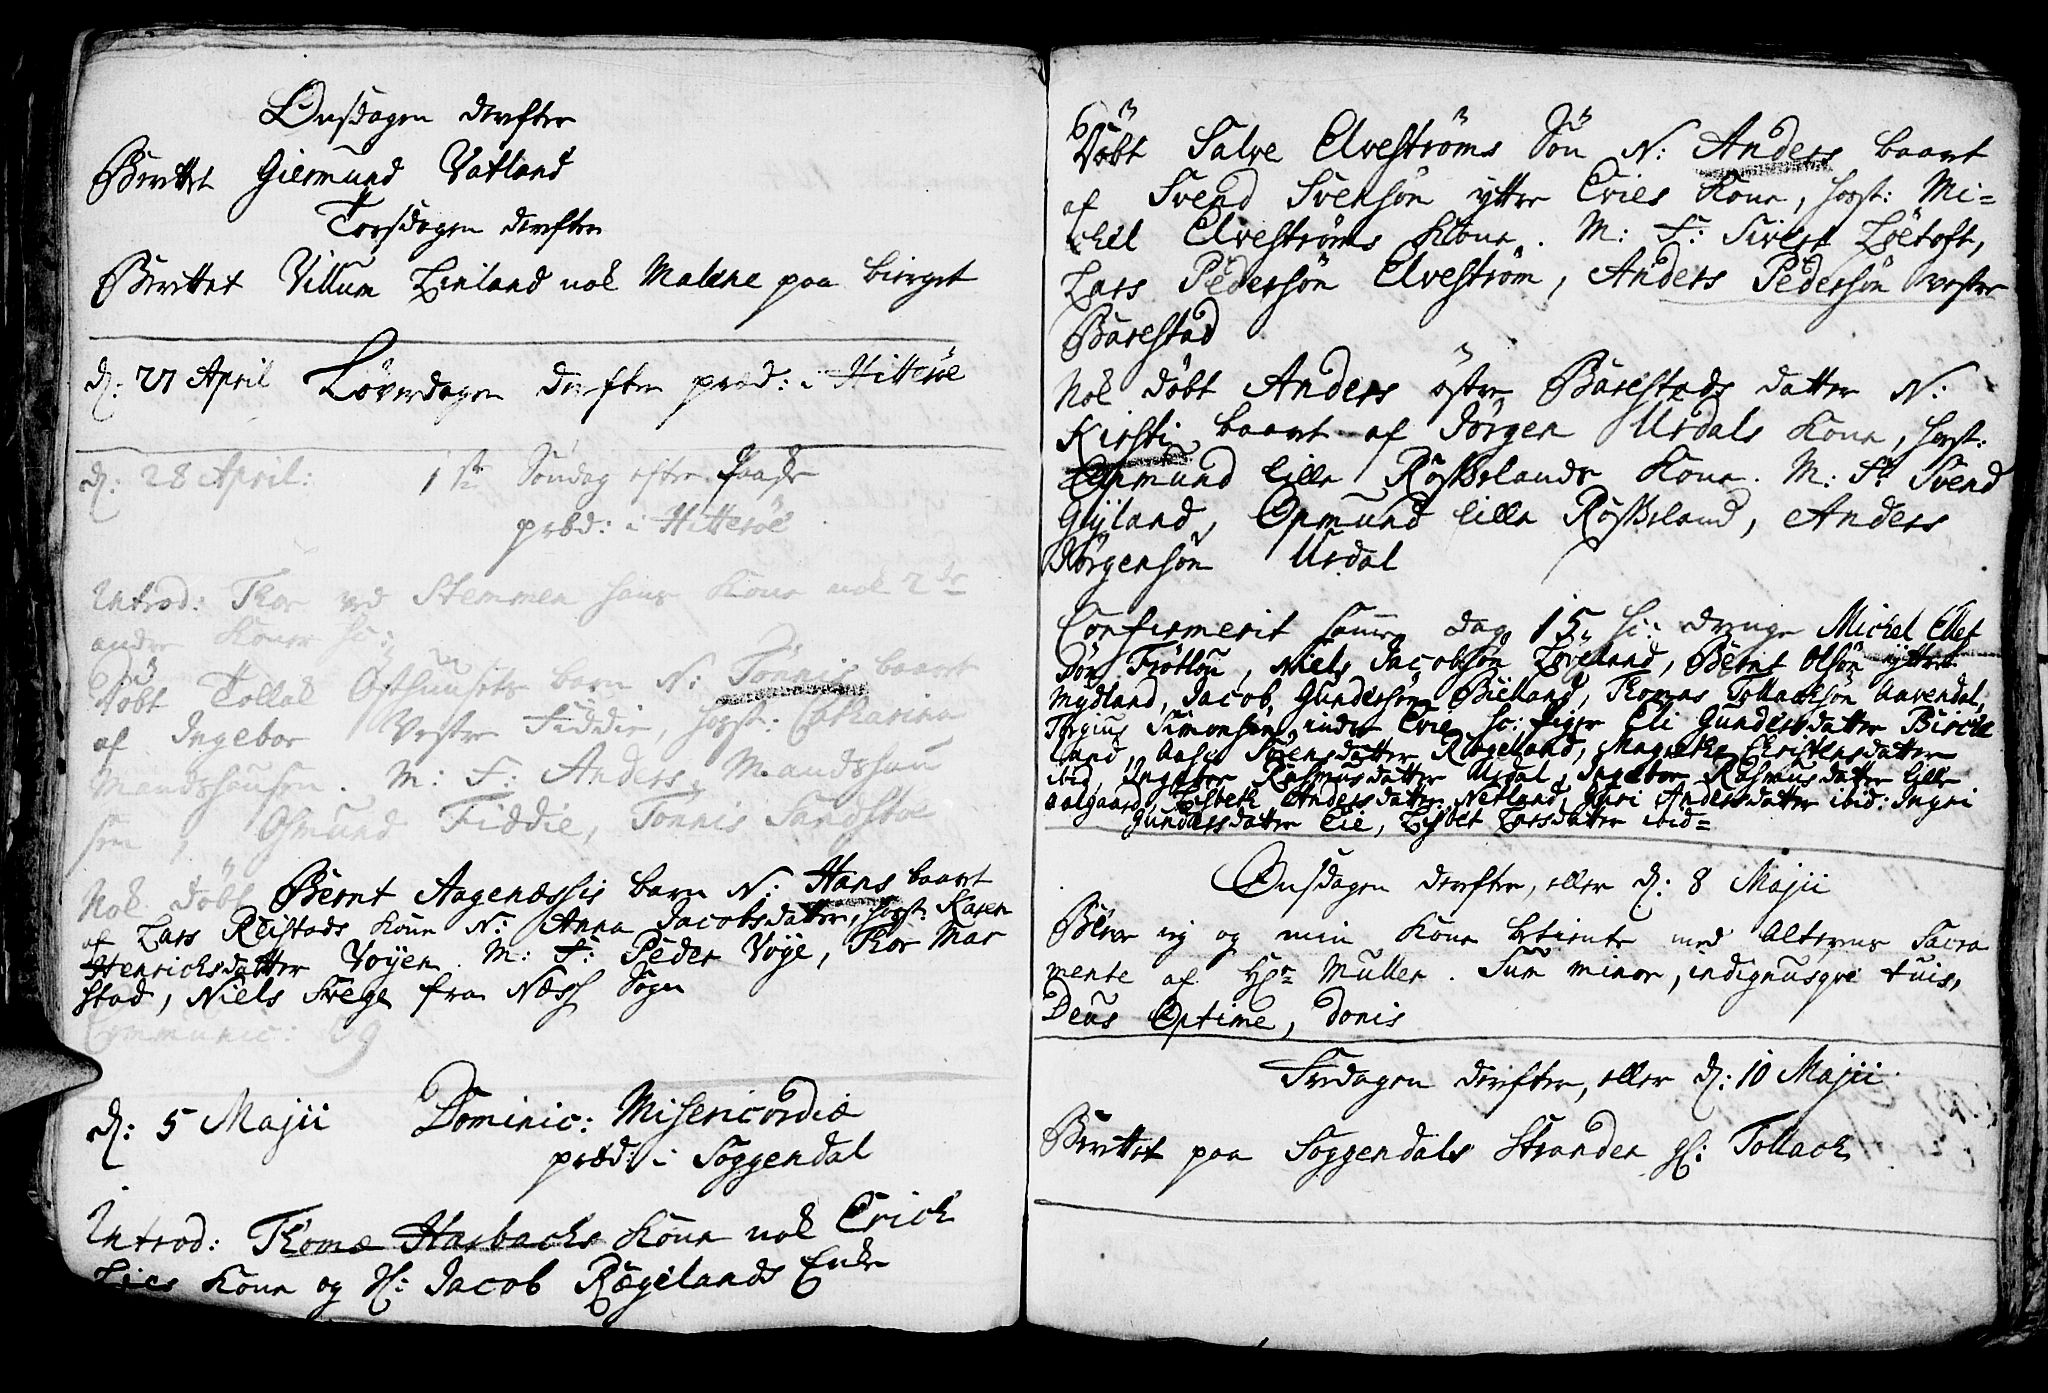 Onsdagen derefter
Berettet Giermund Vatland
Torsdagen derefter
Berettet Villum Linland nok Malene paa bierget
d: 27 April Löverdagen derefter præd: i Hitteröe
d: 28 April: 1ste Söndag efter Paaske
præd: i Hitteröe
Introd: Thor ved Stemmen hans Kone nok 2de
andre Koner sc:
Döbt Tollak Osthuusets barn N: Tönnis baaret
af Ingebor Vestre Fiddie, hosst: Catharina
Mandshausen. M: F: Anders Mandshau
sen, Osmund Fiddie, Tönnis Sandsboe
Nok döbt Bernt Aagenæssis barn N: Hans baaret
af Lars Reistads Kone N: Anna Jacobsdatter, hosst: Karen
Henrichsdatter Voyen. M: F: Peder Voye, Thor Mar
stad, Niels Frege fra Næss Sogn
Communic: 69
d: 5 Maji Dominic: Misericordiæ
præd: i Soggendal
Introd: Thomæ Harbachs Kone nok Erich
Kone og Sl: Jacob Rægelands Enke
Döbt Salve Elveströms Sön N: Anders baaret
af Svend Svensön yttre Eries Kone, hosst: Mi=
chel Elveströms Kone. M: F: Sivert Löetoft,
Lars Pedersön Elveström, Anders Pedersön vestre
Barestad
Nok döbt Anders östre Barestads datter N:
Kirsti baaret af Jörgen Urdals Kone, hosst:
Omund lille Rösslands Kone. M: F: Svend
Gyland, Omund lille Rössland, Anders
Jörgensön Urdal
Confirmerit samme dag 15 sc: drenge Michel Ellef
sön Frötlou, Niels Jacobsön Löveland, Bernt Olsön yttre
Mydland, Jacob Gundersön Bieland, Thomas Tollachsön Aarendal,
Torgius Simonsen, indre Erie sc: piger Eli Gundersdatter Birche
land, Aase Svensdatter Rægeland, Magrethe Christensdatter
ibid, Ingebor Rasmusdatter Urdal, Ingebor Rasmusdatter lille
Aalgaard, Lisbeth Andersdatter Netland, Guri Andersdatter ibid: Ingri
Gundersdatter Eie, Lisbet Larsdatter ibid=
Onsdagen derefter, eller d: 8 Maji
Blev ieg og min Kone betiente med Alterens Sacra
mente af Hr Muller. Sum minor, indignusqve tuis,
Deus Optime, donis
Fredagen derefter, eller d: 10 Maji
Berettet paa Soggendals Stranden Sl: Tollach